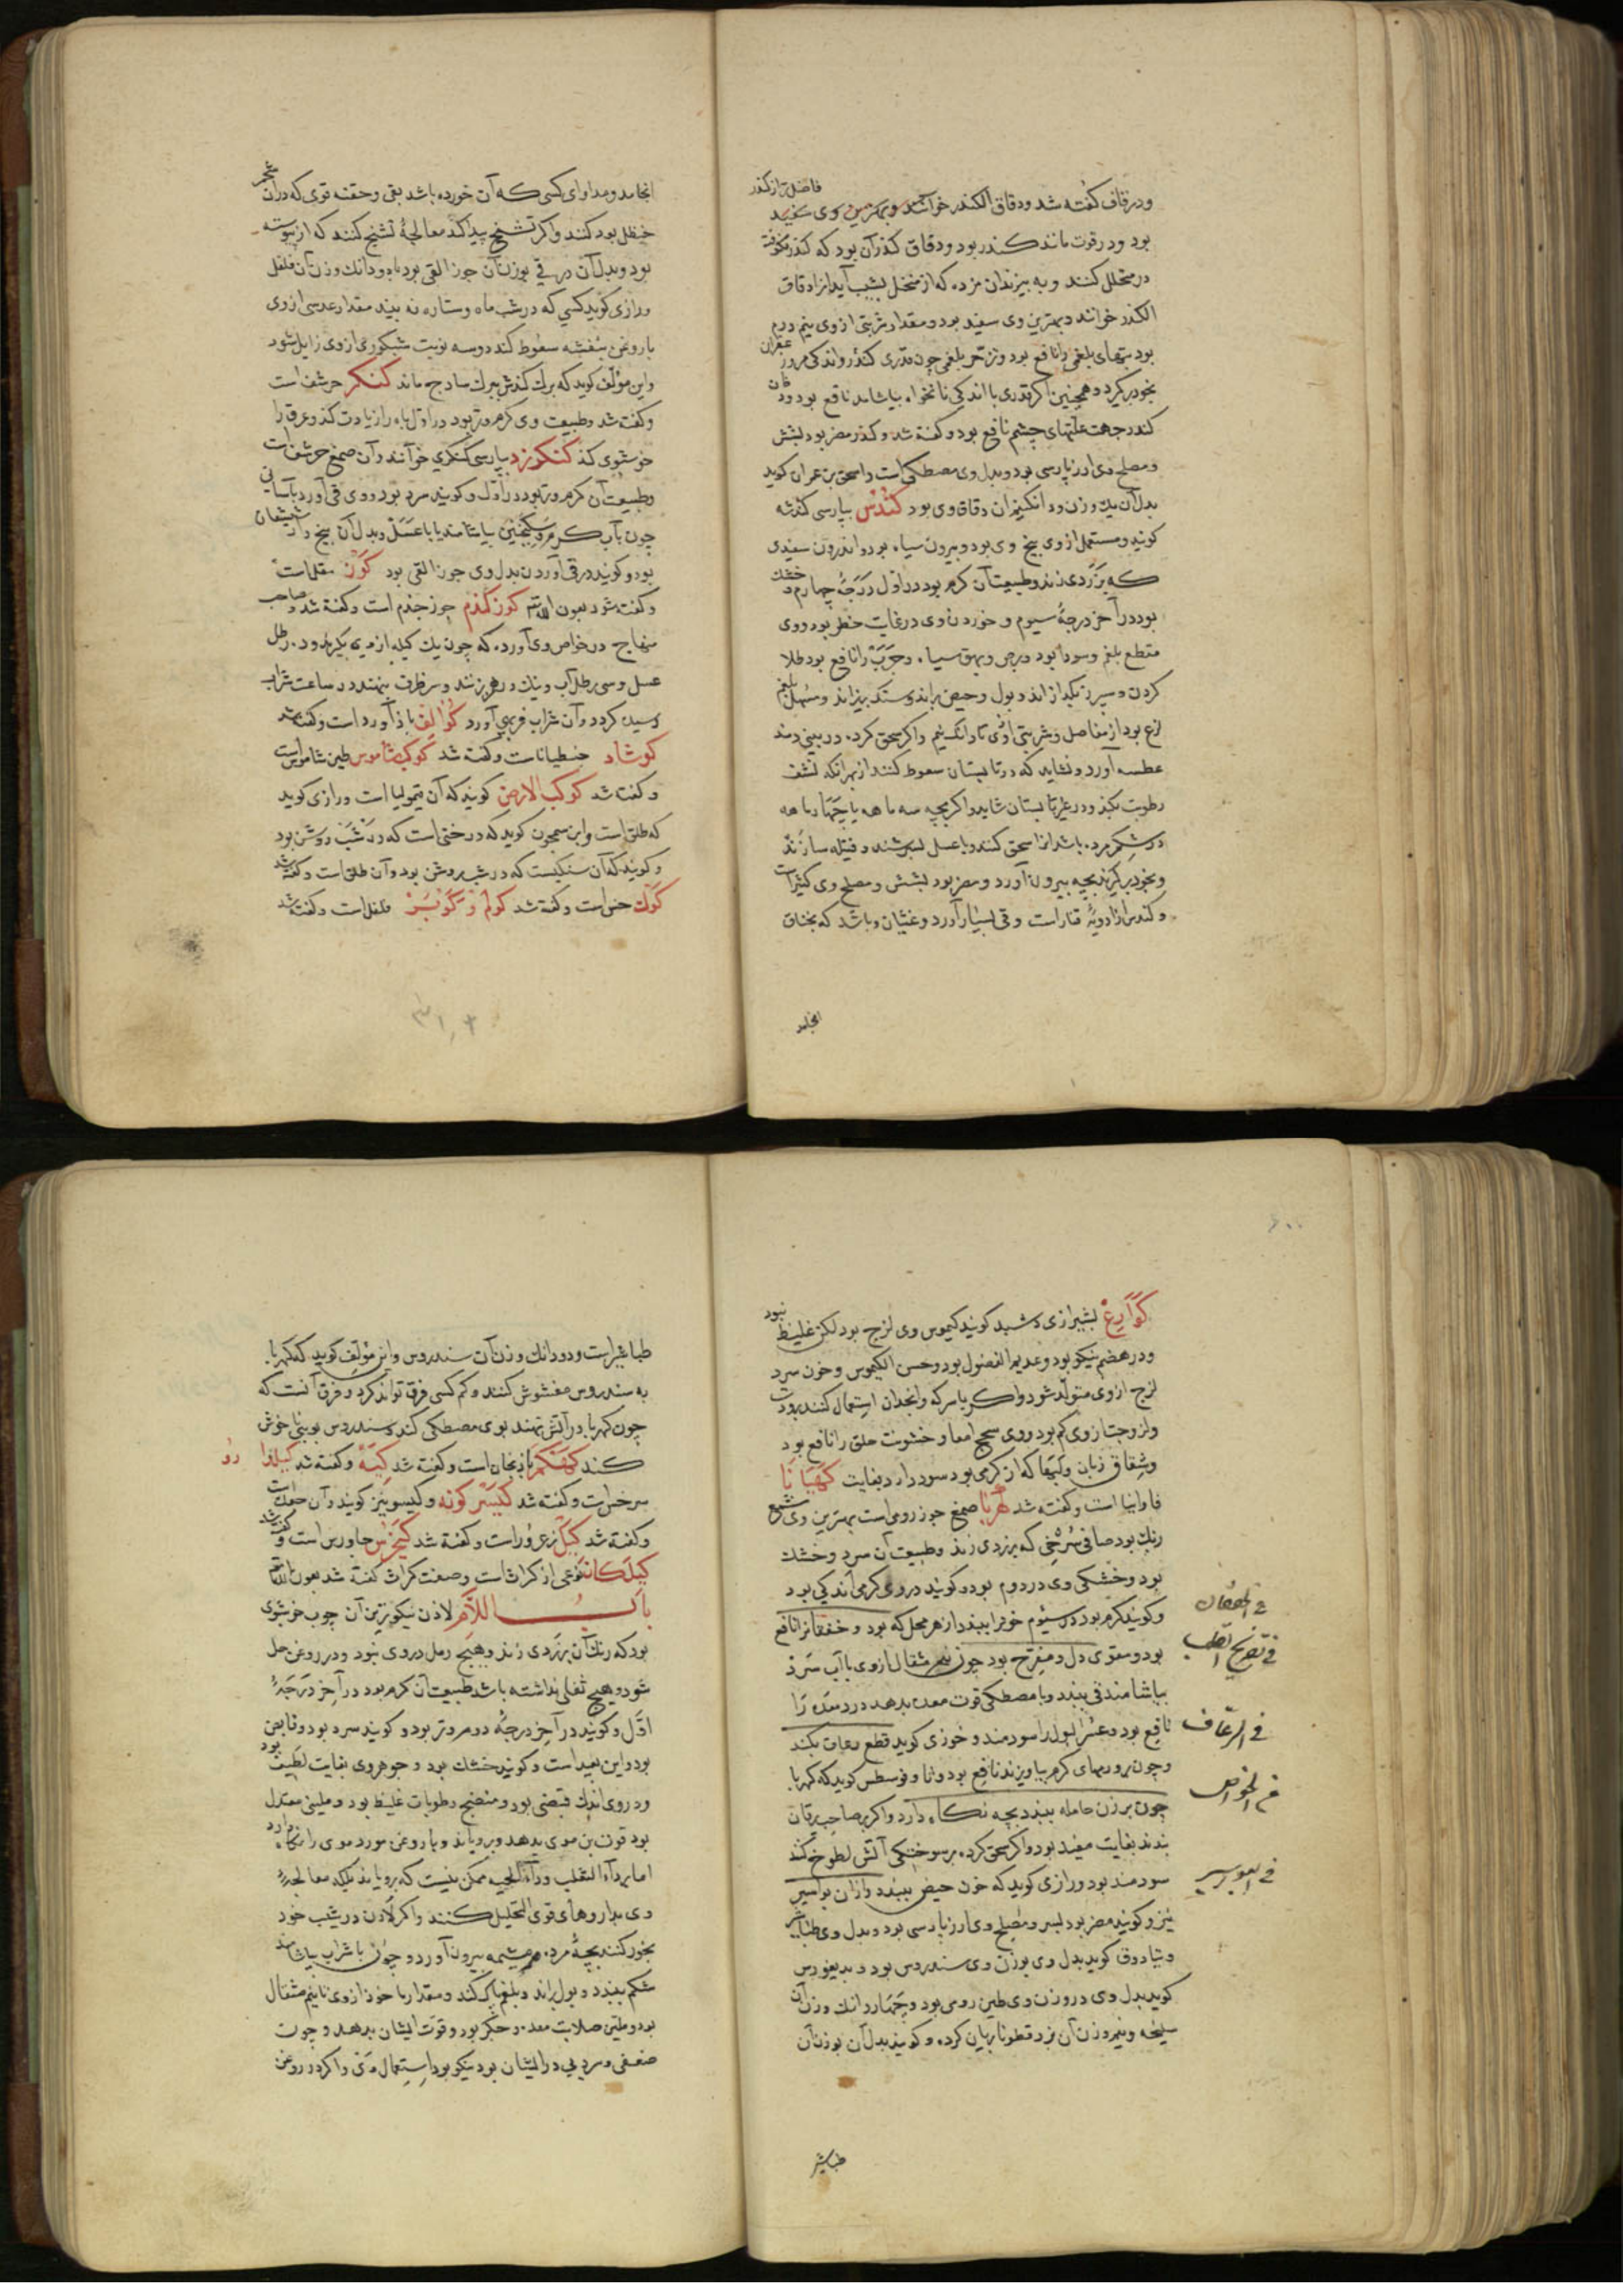 فاضل تر از کندر
ودر قاف کفته شد ودقاق الکندر خوانند وبهترین وی سفید
بود ودر قوت مانند کندر بود ودقاق کندر آن بود که کندر
در منخل کنند و به بیزند آن مزده که از منخل بشیب آید انرا دقاق
الکندر خوانند وبهترین وی سفید بود ومقدار شربتی از وی نیم درم
بود تبهای بلغمی را نافع بود وتزحر بلغمی چون قدری کندر واندکی
بخود برکیرد وهمچنین اکر قدری با اندکی نانخواه بیاشامد نافع بود ود
کندر جهت علتهای چشم نافع بود وکفته شد وکندر مضر بود بشش
ومصلح وی ارزیارسی بود وبدل وی مصطکی است واسحق بن عمران کوید
بدل آن یک وزن ودانکنیم ان دقاق وی بود کندس بپارسی کندشه
کویند ومستعمل از وی بیخ وی بود وبیرون سیاه بود واندرون سفیدی
که بزردی زند وطبیعت آن کرم بود در اول درجهٔ چهارم وخشک
بود در آخر درجهٔ سیوم و خوردن وی در غایت خطر بود ووی
مقطع بلغم وسودا بود وبرص وبهق سیاه وجرب را نافع بود طلا
کردن وسپرز بکدازاند وبول وحیض براند وسنک بریزاند ومسهل بلغم
لزج بود از مفاصل وشربتی از وی تا دانکنیم واکر سحق کرده در بینی دمند
عطسه آورد ونشاید که در تابستان سعوط کنند از بهر انکه نشف
رطوبت بکند ودر غیر تابستان شاید واکر بچه سه ماهه یا چهار ماهه
در شکم مرده باشد انرا سحق کنند وبا عسل بسرشند وفتیله سازند
وبخود برکیرند بچه بیرون آورد ومضر بود بشش ومصلح وی کثیراست
وکندس از ادویهٔ قتاله است وقی بسیار آورد وغثیان وباشد که بخناق
انجامد
انجامد ومداوای کسی که آن خورده باشد بقی وحقنه قوی که در آن شحم
حنظل بود کنند واکر تشنج پیدا کند معالجهٔ تشنج کنند که از یبوست
بود وبدل آن در قی بوزن آن جوز القی بود ودانک وزن آن فلفل
ورازی کوید کسی که در شب ماه وستاره نه بیند مقدار عدسی از وی
با روغن بنفشه سعوط کند دو سه نوبت شبکوری از وی زایل شود
واین مؤلف کوید که برک کندش ببرک سادج ماند کنکر حرشف است
وکفته شد وطبیعت وی کرم وتر بود در اول باه را زیادت کند وعرق را
خوشبوی کند کنکرزد بپارسی کنکری خوانند وآن صمغ حرشف است
وطبیعت آن کرم وتر بود در اول وکویند سرد بود ووی قی آورد بآسانی
چون بآب کرم وسکنجبین بیاشامند یا با عسل وبدل آن بیخ دار شیشعان
بود وکویند در قی آوردن بدل وی جوز القی بود کور مقل است
وکفته شود بعون الله کوز کندم جوز جندم است وکفته شد وصاحب
منهاج در خواص وی آورده که چون یک کیله از وی بکیرند ود رطل
عسل وسی رطل آب ونیک درهم زنند وسر ظرف ببندند در ساعت شراب
رسیده کردد وآن شراب فربهی آورد کوالف باذآورد است وکفته شد
کوشاد جنطیانا است وکفته شد کوکب شاموس طین شاموس است
وکفته شد کوکب الارض کویند که آن قیمولیا است ورازی کوید
که طلق است وابن سمجون کوید که درختی است که در شب روشن بود
وکویند که آن سنکیست که در شب روشن بود وآن طلق است وکفته شد
کوک خس است وکفته شد کولم وکونبر فلفل است وکفته شد
کوارع بشیرازی کویند کیموس وی لزج بود لکن غلیظ نبود
ودر هضم نیکو بود وعدیم الفضول بود وحسن الکیموس وخون سرد
لزج از وی متولد شود واکر با سرکه وانجدان استعمال کنند برودت
ولزوجت از وی کم بود ووی سحج امعا وخشونت حلق را نافع بود
وشقاق زبان ولبها که از کرمی بود سود دارد بغایت کهیانا
فاوانیا است وکفته شد کهربا صمغ جوز رومی است بهترین وی شمع
رنک بود صافی سرخی که بزردی زند وطبیعت آن سرد وخشک
بود وخشکی وی در دوم بود وکویند در وی کرمی اندکی بود
وکویند کرم بود در سیوم خون را ببندد از هر محل که بود وخفقان را نافع
بود ومقوی دل ومفرح بود چون نیم مثقال از وی با آب سرد
بیاشامند قی ببندد وبا مصطکی قوت معده بدهد درد معده را
نافع بود وعسر البول را سودمند وخوزی کوید قطع رعاف بکند
وچون بر ورمهای کرم بیاویزند نافع بود وثاوفرسطس کوید که کهربا
چون بر زن حامله ببندد بچه نکاه دارد واکر بر صاحب یرقان
بندند بغایت مفید بود واکر سحق کرده بر سوختکی آتش لطوخ کنند
سودمند بود ورازی کوید که خون حیض ببندد وازان بواسیر
نیز وکویند مضر بود بسر ومصلح وی ارزپارسی بود وبدل وی طباشیر
وتیادوق کوید بدل وی بوزن وی سندروس بود وبدیغورس
کوید بدل وی دو وزن وی طین رومی بود وچهار دانک وزن آن
سلیخه ونیم وزن آن بزرقطونا بریان کرده وکویند بدل آن بوزن آن
فی الخفقان
فی تفریح القلب
فی الرعاف
فی الخواص
فی البواسیر
طباشیر
طباشیر است ودو دانک وزن آن سندروس واین مؤلف کوید که کهربا
به سندروس مغشوش کنند وکم کسی فرق تواند کرد وفرق آنست که
چون کهربا در آتش نهند بوی مصطکی کند وسندروس بوی ناخوش
کند کهفکم باذنجان است وکفته شد کیبه وکفته شد کیلدارو
سرخس است وکفته شد کیسر کونه وکیسوبنیز کویند وآن جعده است
وکفته شد کیل زعرور است وکفته شد کیخرس جاورس است وکفته شد
کیلکان نوعی از کراث است وصفت کراث کفته شد بعون الله
باب اللام لاذن نیکوترین آن چرب خوشبوی
بود که رنک آن بزردی زند وهیچ رمل در وی نبود ودر روغن حل
شود وهیچ ثفلی نداشته باشد طبیعت آن کرم بود در آخر درجهٔ
اول وکویند در آخر درجهٔ دوم وتر بود وکویند سرد بود وقابض
بود واین بعید است وکویند خشک بود وجوهر وی بغایت لطیف بود
ودر وی اندک قبضی بود ومنضج رطوبات غلیظ بود وملینی معتدل
بود قوت بن موی بدهد وبرویاند وبا روغن مورد موی را نکاه دارد
اما بر داء الثعلب وداء الحیه ممکن نیست که برویاند بلکه معالجهٔ
وی بداروهای قوی التحلیل کنند واکر لاذن در شیب خود
بخور کنند بچهٔ مرده ومشیمه بیرون آورد وچون با شراب بیاشامند
شکم ببندد وبول براند وبلغم پاک کند ومقدار ماخوذ از وی تا نیم مثقال
بود وملین صلابت معده وجکر بود وقوت ایشان بدهد وچون
ضعفی وسردیی در ایشان بود نیکو بود استعمال وی واکر در روغن